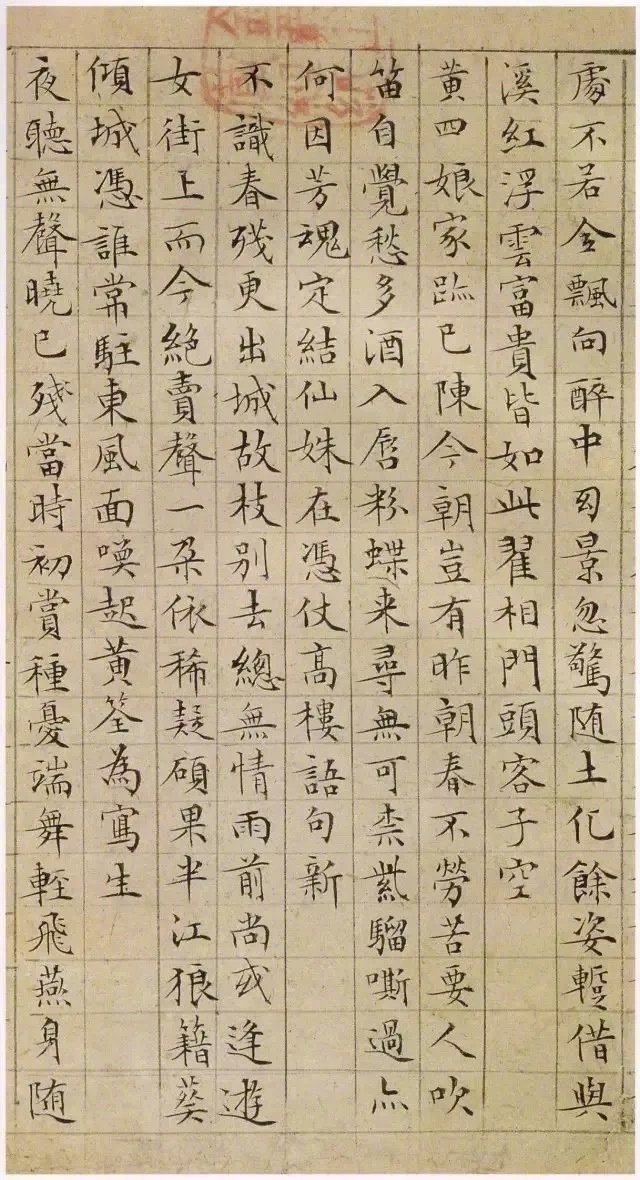 處不若全飄向醉中幻景忽驚随土化餘姿蹔借與
溪紅浮雲富貴皆如此翟相門頭客子空
黄四娘家跡已陳今朝豈有昨朝春不勞苦要人吹
笛自覺愁多酒入唇粉蝶来尋無可柰紫騮嘶過亦
何因芳魂定結仙姝在憑仗高樓語句新
不識春殘更出城故枝别去總無情雨前尚或逢遊
女街上而今絶賣聲一朶依稀疑碩果半江狼籍葵
傾城憑誰常駐東風面喚起黄筌為寫生
夜聽無聲曉已殘當時初賞種憂端舞輕飛燕身随